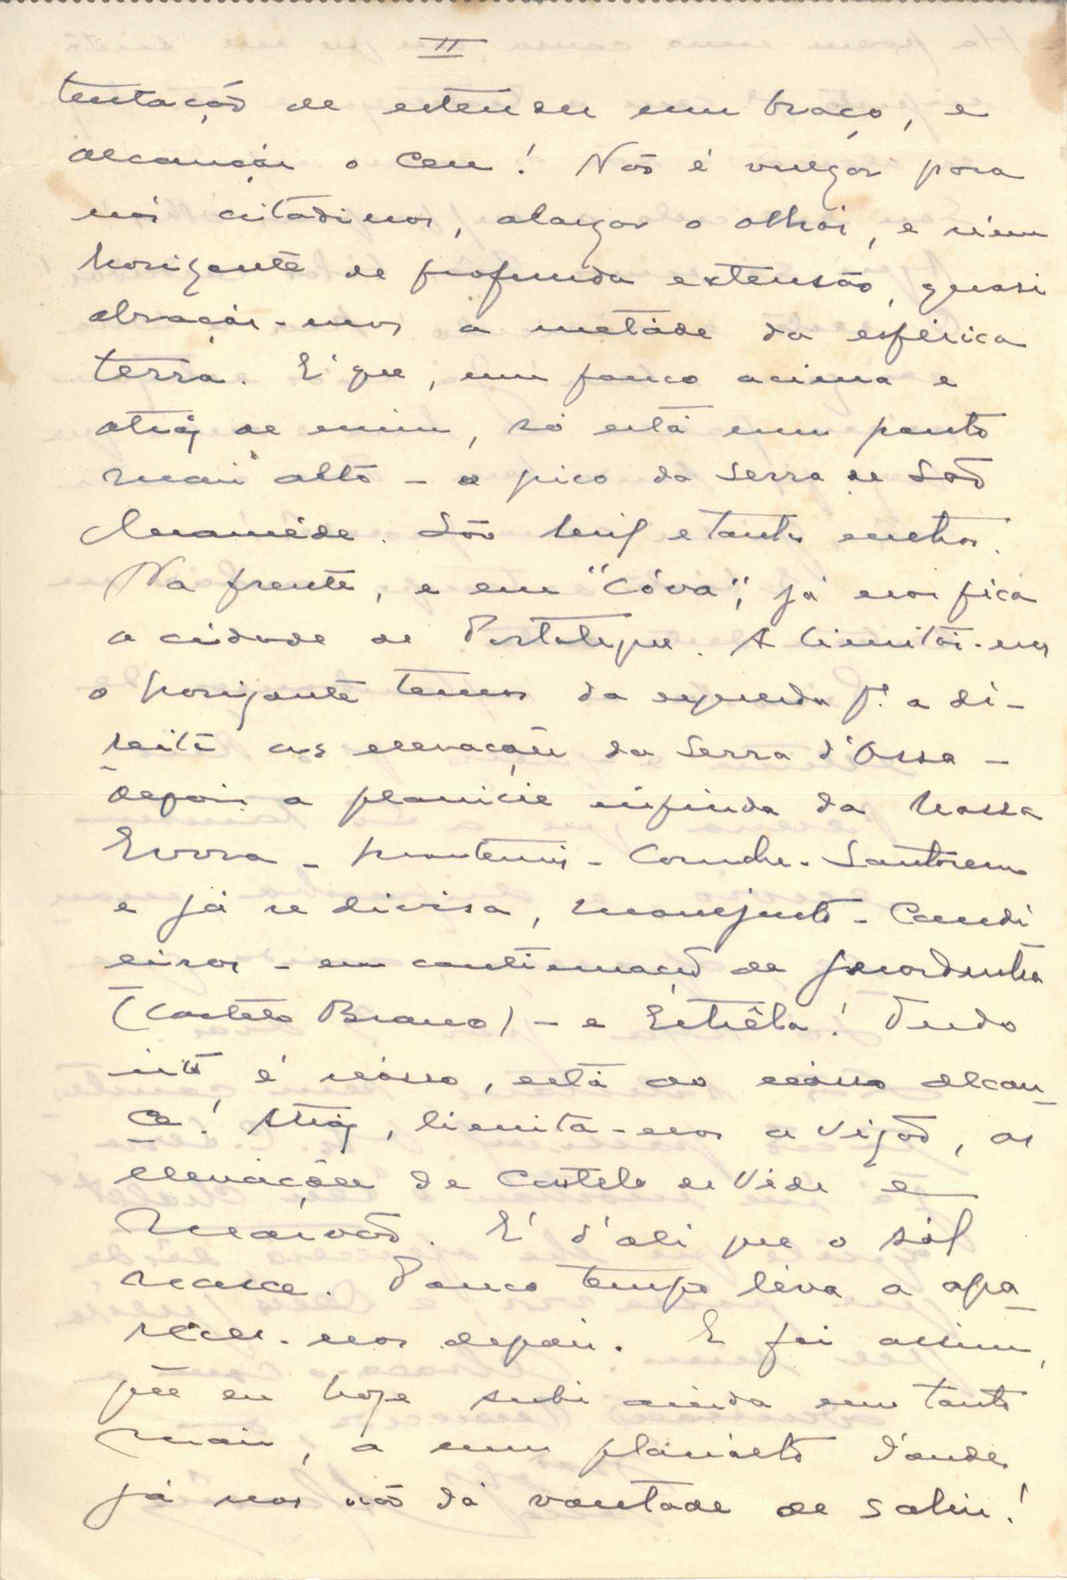 II
tentação de estender um braço, e
alcançar o Ceu! Não é vulgar para
nós citadinos, alargar o olhar, e num
horizonte de profunda extensão, quasi
abraçar-mos a metade da esférica
terra. E' que, um pouco acima e
atraz de mim, só está um ponto
mais alto - o pico da Serra de São
Mamede. São mil e tantos metros.
Na frente, e em "cóva", já nos fica
a cidade de Portalegre. A limitar-nos
o horizonte temos da esquerda pª a di-
reita as elevações da Serra d'Ossa -
depois a planicie infinda da nossa
Evora - Coruche - Santarem
e já se divisa, Monejunto - Candi
eiros - em continuação de Gardunha
(Castelo Branco) - e Estrêla! Tudo
isto é nosso, está ao nosso alcan-
ce! Atraz, limita-nos a visão, as
elevações de Castelo de Vide e
Marvão. E' d'ali que o sól
nasce. Pouco tempo leva a apa-
recer-nos depois. E foi assim,
que eu hoje subi ainda um tanto
mais, a um planalto d'onde
já nos não dá vontade de sair!